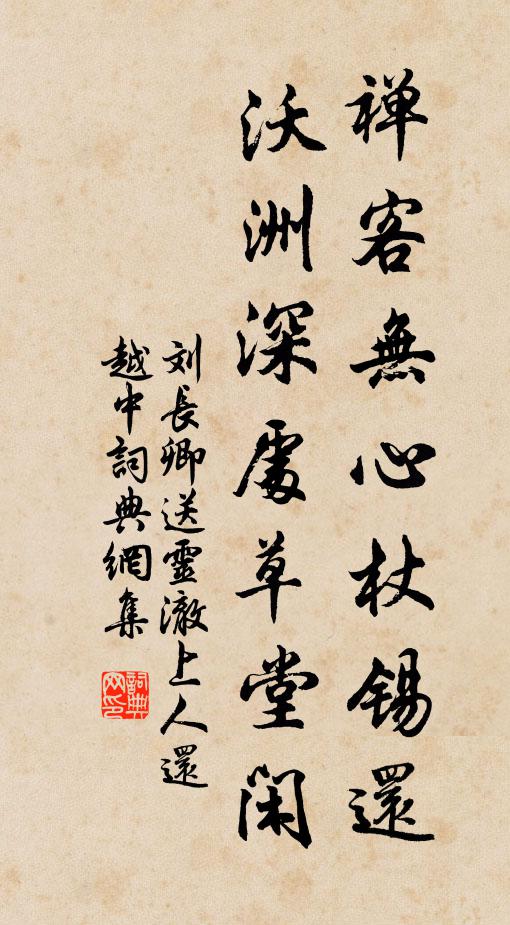 禅客無心杖锡還
沃洲深處草堂闲
刘長卿送靈澈上人還
越中詞典網集
詞典网印